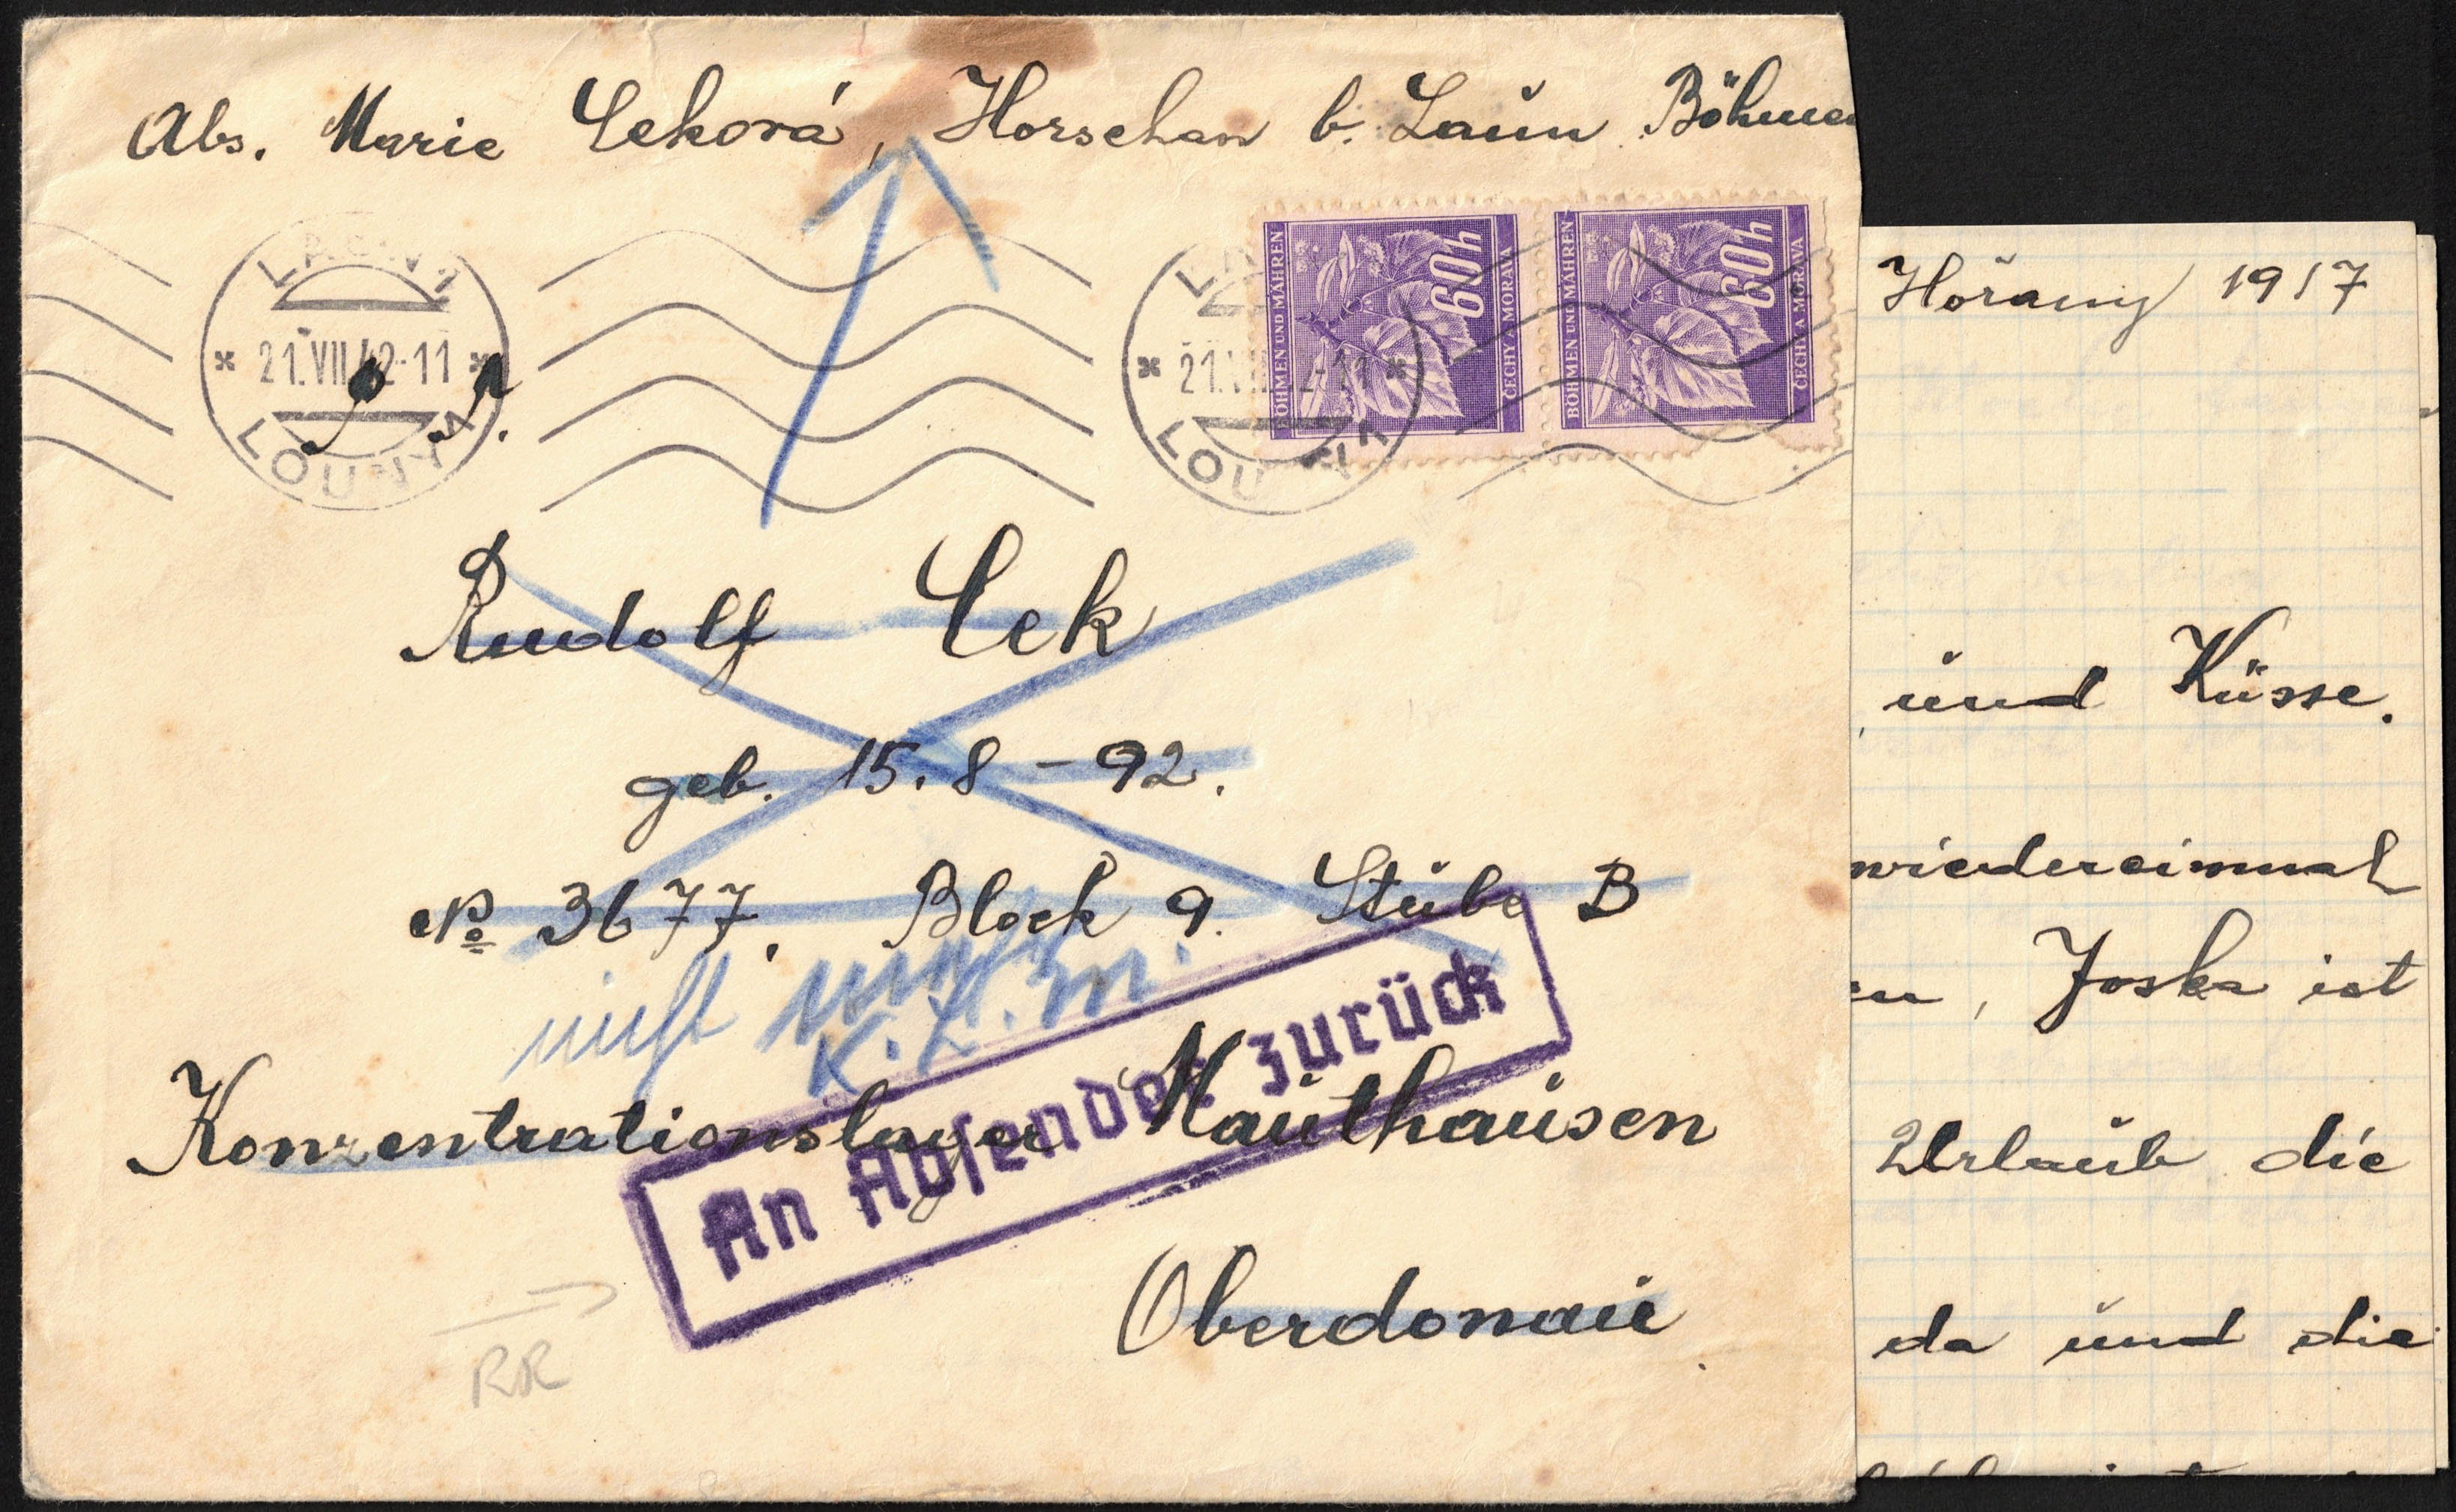 Abs. Marie Ceková, Horschan b. Laun Böhmen
LAUN 1
* 21.VII.42-11 *
LOUNY 1
LAUN 1
* 21.VII.42-11 *
LOUNY 1
BÖHMEN UND MÄHREN
60h
ČECHY A MORAVA
BÖHMEN UND MÄHREN
60h
ČECHY A MORAVA
Rudolf Cek
geb. 15.8-92.
No 3677. Block 9. Stube B
nicht mehr
K.L.M.
Konzentrationslager Mauthausen
An Absender zurück
Oberdonau
RR
Hořany 19 17
und Küsse.
wiedereinmal
en, Joska ist
Urlaub die
da und die